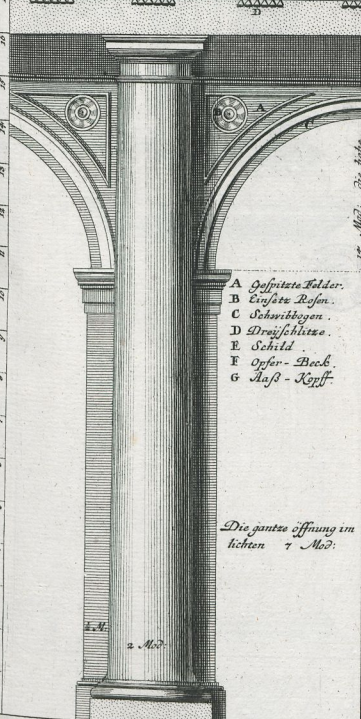 D
B
A
C
A Gespitzte Felder.
B Einsatz Rosen.
C Schwibbogen.
D Dreÿschlitze.
E Schild
F Opfer-Beck.
G Aaß-Kopff.
Die gantze öffnung im
lichten 7 Mod:
½ M.
2 Mod: